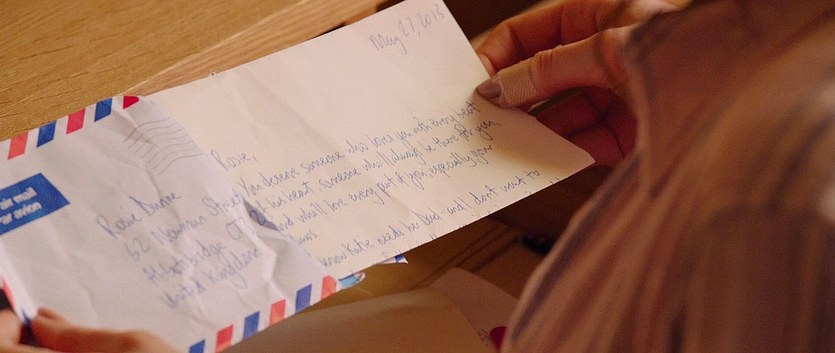 May 27, 2013
Rosie,
You deserve someone who loves you with every beat
of his heart, someone who'll always be there for you,
and who'll love every part of you, especially your
flaws.
know Katie needs her Dad and I don't want to
air mail
Par avion
Rosie Dunne
52 Newman Street
United Kingdom